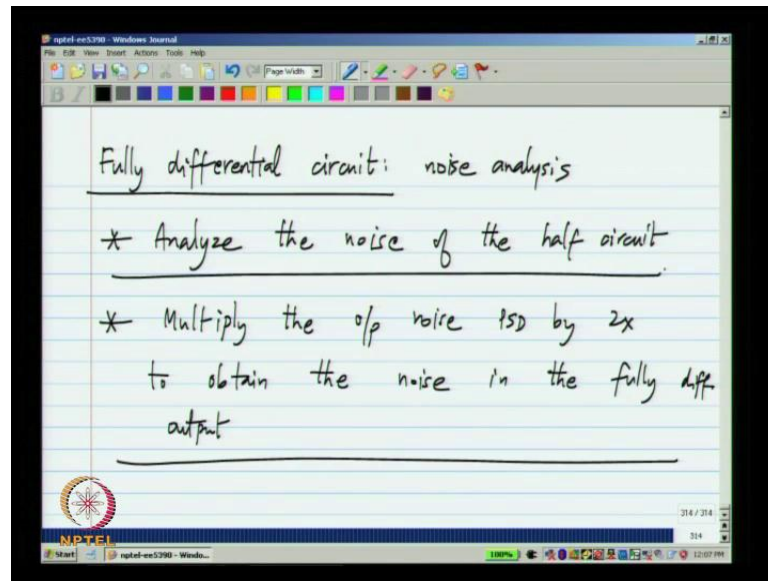 nptel-ee5390 - Windows Journal
File Edit View Insert Actions Tools Help
Page Width
B I
Fully differential circuit: noise analysis
* Analyze the noise of the half circuit
* Multiply the o/p noise PSD by 2x
to obtain the noise in the fully diff
output
314 / 314
314
NPTEL
Start nptel-ee5390 - Windo... 100% 12:07 PM